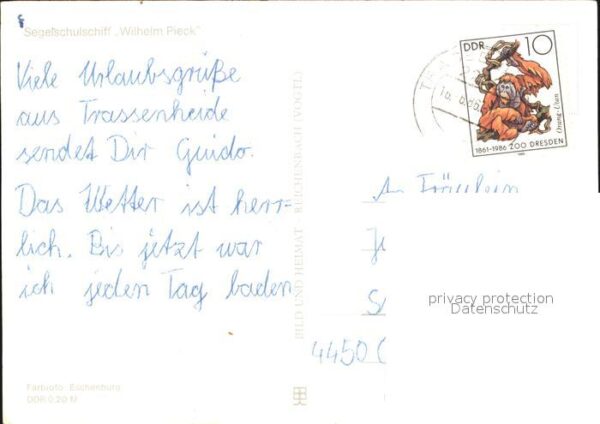 Segelschulschiff „Wilhelm Pieck"
Viele Urlaubsgrüße
aus Trassenheide
sendet Dir Guido.
Das Wetter ist herr=
lich. Bis jetzt war
ich jeden Tag baden
Farbfoto: Eschenburg
DDR 0,20 M
BILD UND HEIMAT REICHENBACH (VOGTL)
DDR 10
Orang-Utan
1861-1986 ZOO DRESDEN
An Fräulein
4450
privacy protection
Datenschutz